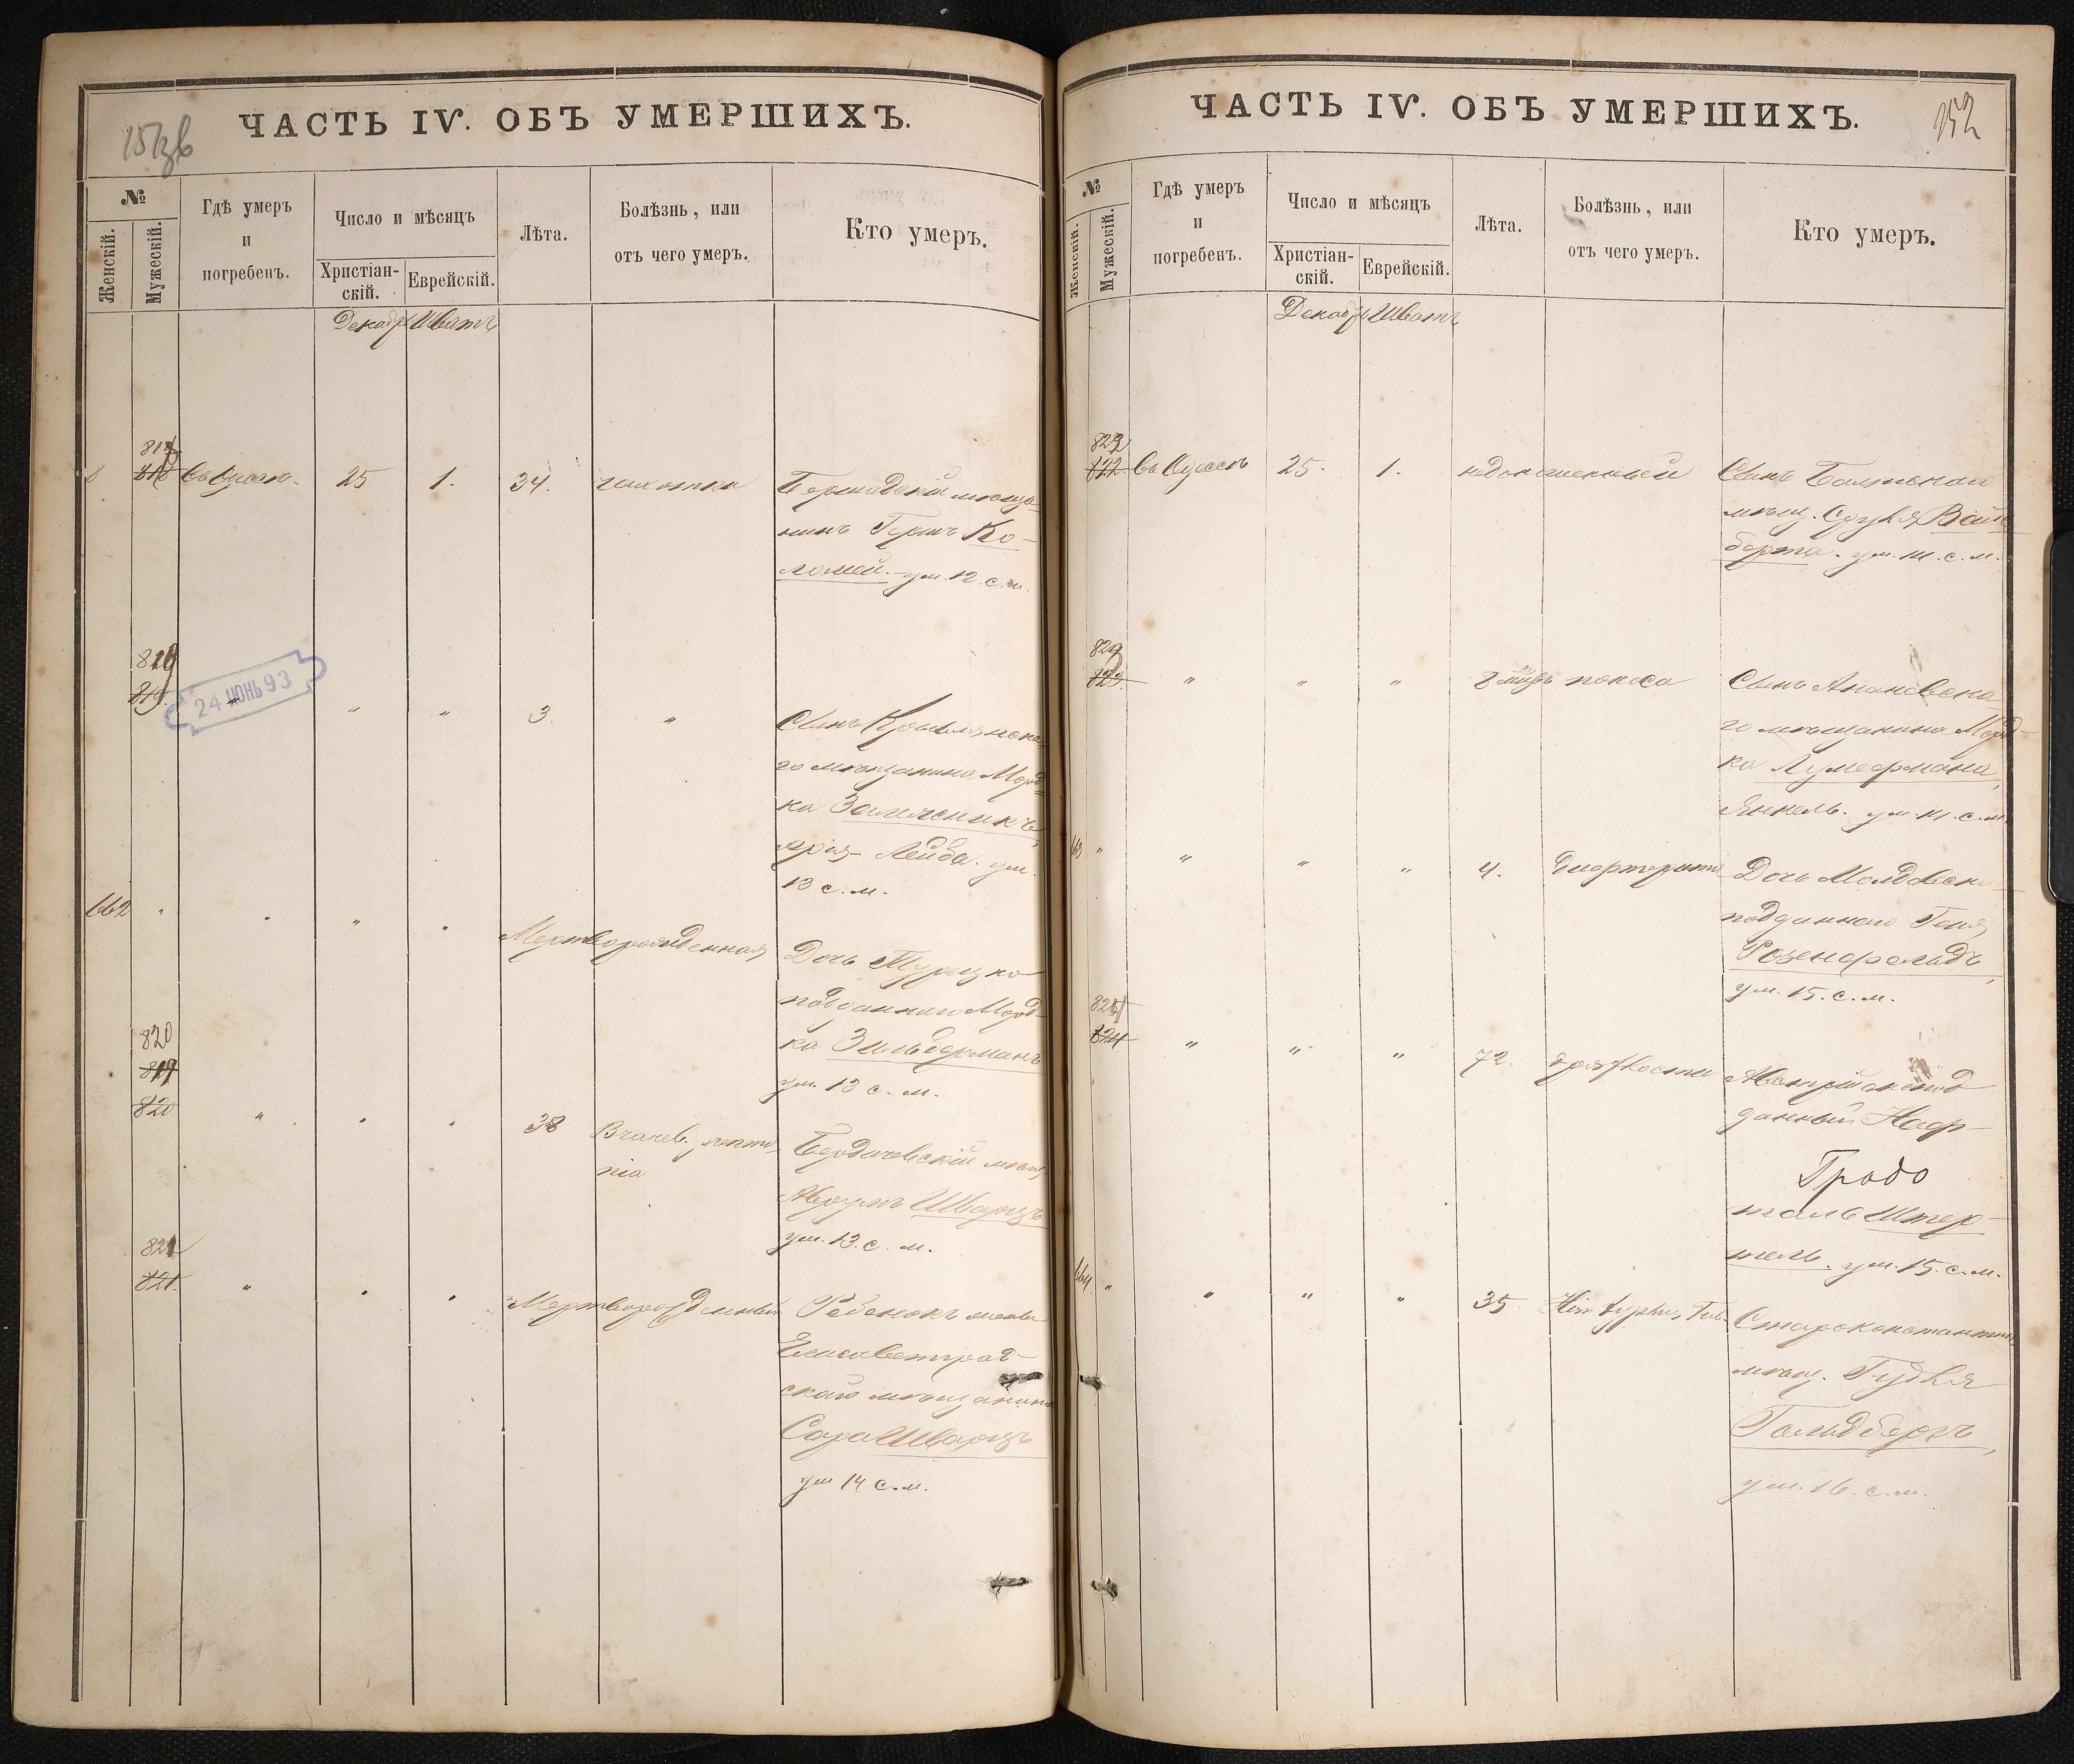 151 об
ЧАСТЬ IV. ОБЪ УМЕРШИХЪ.
№
Женскій.
Мужескій.
Гдѣ умеръ
и
погребенъ.
Число и мѣсяцъ
Христіан-
скій.
Еврейскій.
Лѣта.
Болѣзнь, или
отъ чего умеръ.
Кто умеръ.
Декабр Шватъ
818
въ Одессѣ. 25 1. 34. чахотка
Бершадскій мѣща-
нинъ Гершъ Ко-
ломей. ум. 12. с. м.
819
24 ІЮНЬ 93
" " 3. "
Сынъ
го мѣщанина Морд-
ка
Лейба. ум.
13 с. м.
662 " " " " Мертворожденная
Дочь Турецко
подданнаго Морд-
ка Зильберманъ
ум. 13 с. м.
820
819
820
" " " 38
Бердичевскій мѣщ.
Аврумъ Шварцъ
ум. 13. с. м.
821
821.
" " " Мертворожденный
Ребенокъ
Елисаветград-
скаго мѣщанина
Сара Шварцъ
ум 14 с. м.
152
ЧАСТЬ IV. ОБЪ УМЕРШИХЪ.
№
Женскій.
Мужескій.
Гдѣ умеръ
и
погребенъ.
Число и мѣсяцъ
Христіан-
скій.
Еврейскій.
Лѣта.
Болѣзнь, или
отъ чего умеръ.
Кто умеръ.
Декабр Шватъ
822
въ Одессѣ 25. 1. недоношенный
Сынъ Балтскаго
мѣщ. Сруля Вайс-
берга. ум. 14. с. м.
823.
" " " 8 мѣс.
Сынъ Ананьевска-
го мѣщанина Морд-
ка
Янкель. ум. 14. с. м.
" " " " 4. Дифтеритъ
Дочь Молдавск.
подданнаго Геня
Розенфельдъ,
ум. 15. с. м.
824
" " " 72. дряхлости
Австрійско под
данный Наф-
Градо
таль Штер-
тель. ум. 15. с. м.
664. " " " " 35
Староконстантин.
мѣщ. Гудля
Гольдбергъ,
ум. 16. с. м.